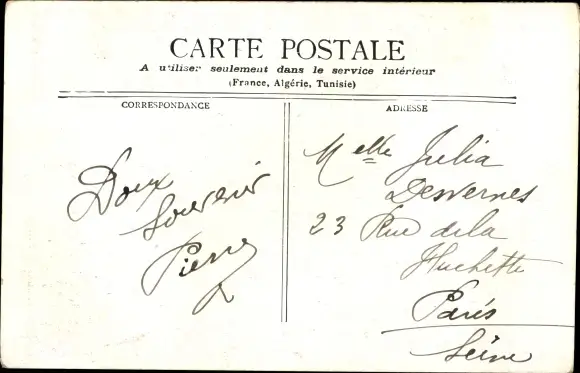 CARTE POSTALE
A utiliser seulement dans le service intérieur
(France, Algérie, Tunisie)
CORRESPONDANCE
Doux
souvenir
Pierre
ADRESSE
Melle Julia
Desvernes
23 Rue de la
Huchette
Paris
Seine